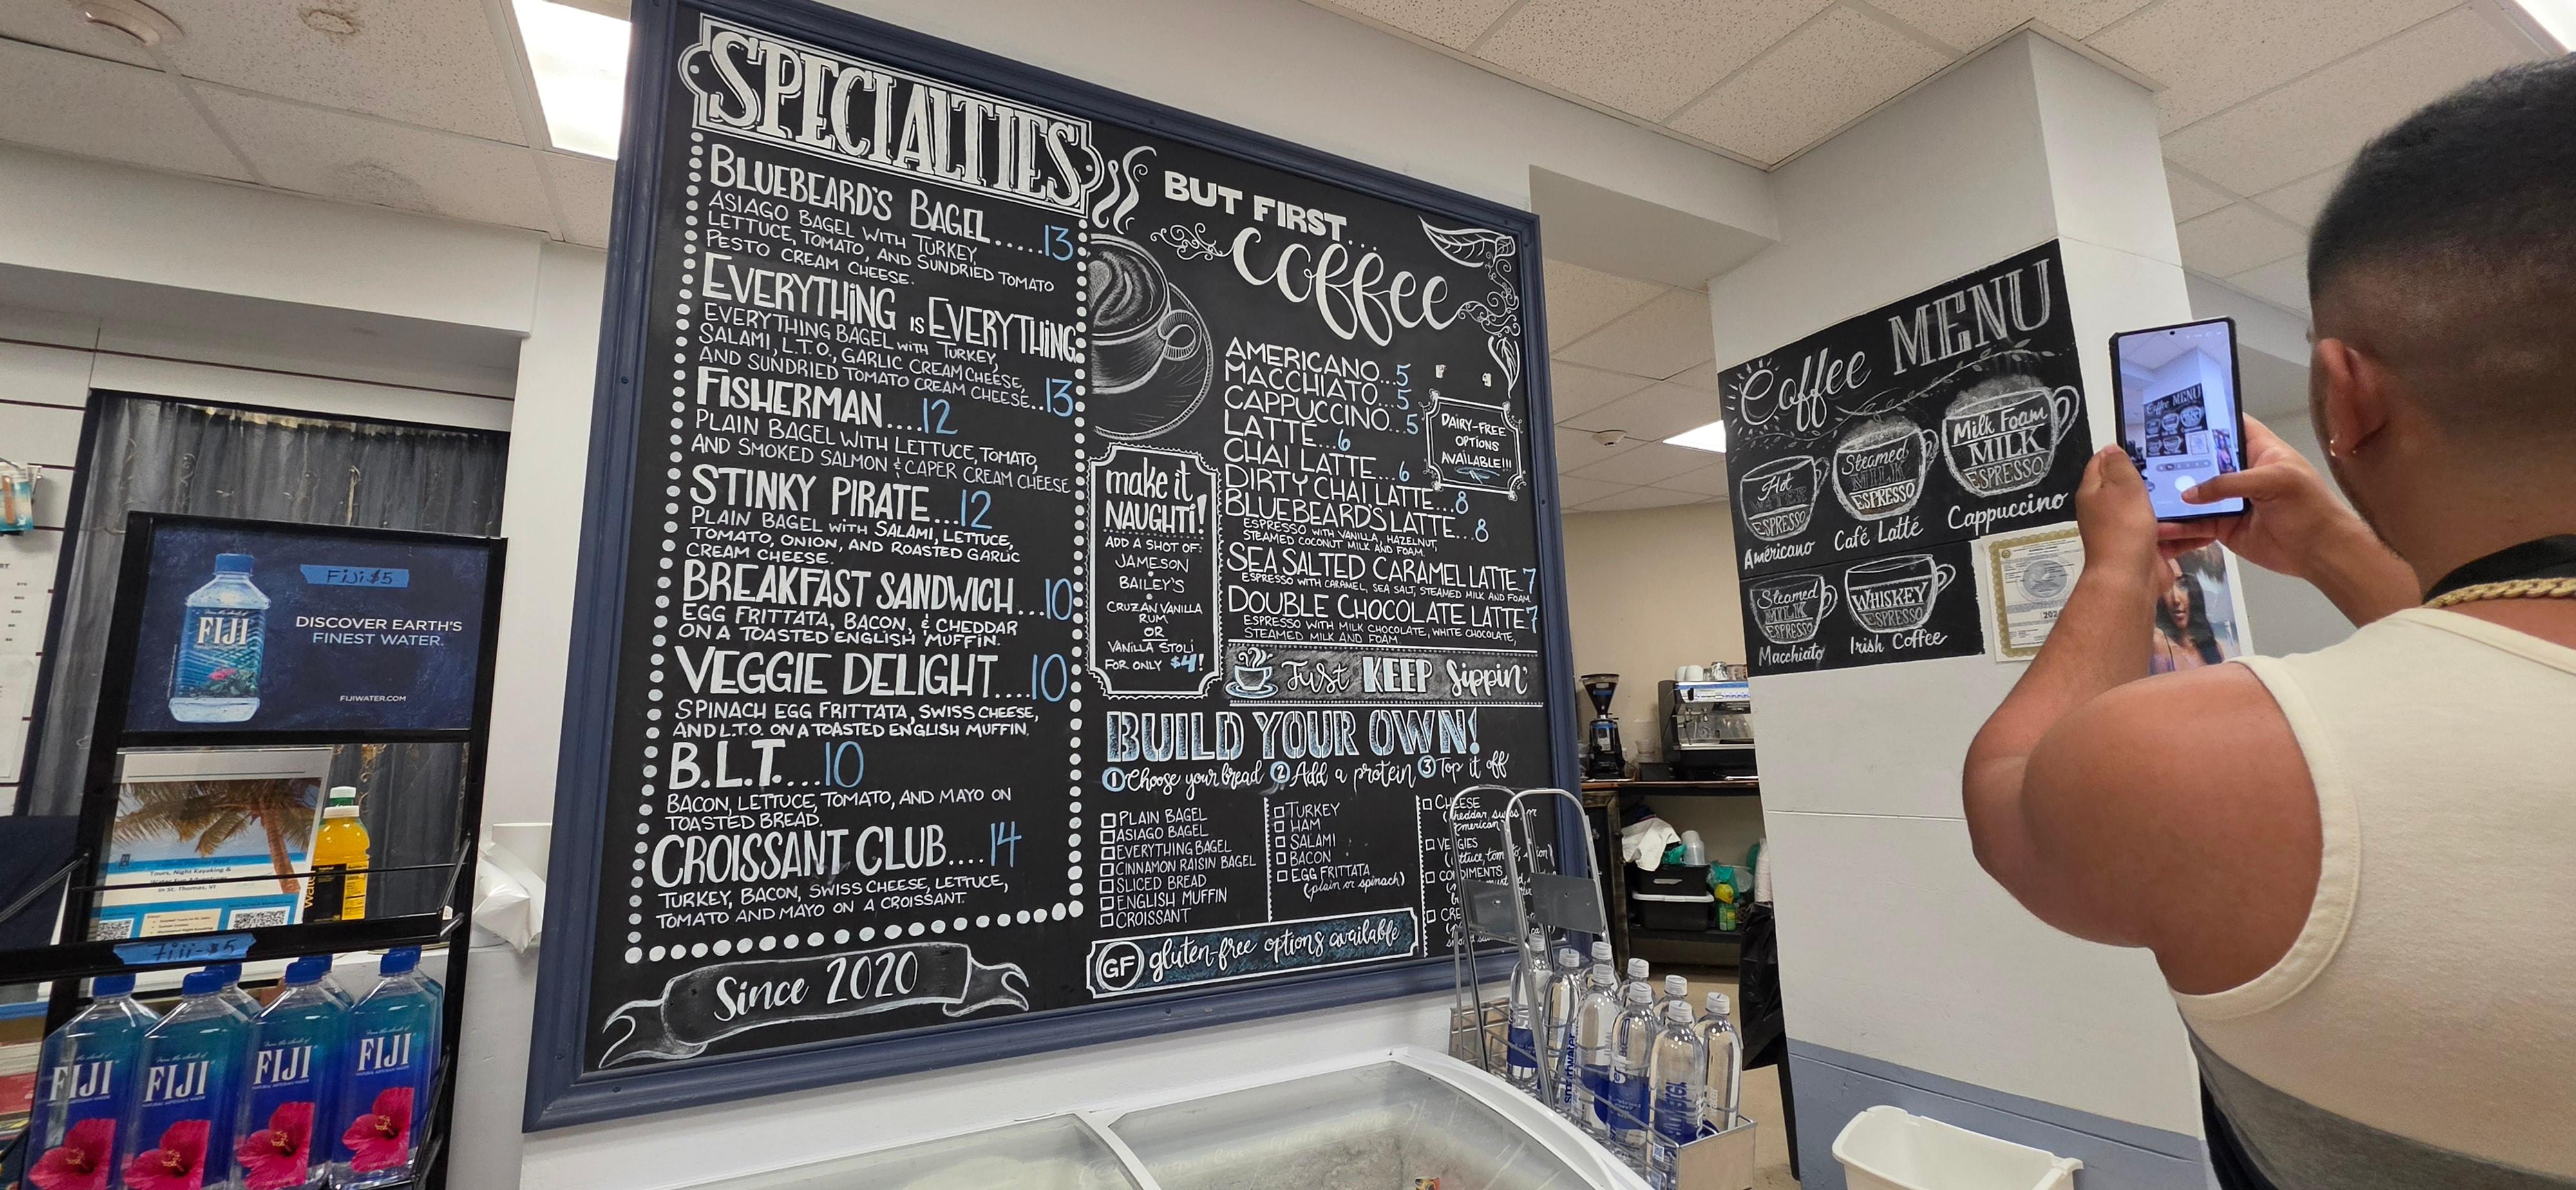 SPECIALTIES
BLUEBEARD'S BAGEL.....13
ASIAGO BAGEL WITH TURKEY,
LETTUCE, TOMATO, AND SUNDRIED TOMATO
PESTO CREAM CHEESE.
EVERYTHING IS EVERYTHING
EVERYTHING BAGEL WITH TURKEY,
SALAMI, L.T.O., GARLIC CREAM CHEESE,
AND SUNDRIED TOMATO CREAM CHEESE..13
FISHERMAN....12
PLAIN BAGEL WITH LETTUCE, TOMATO,
AND SMOKED SALMON & CAPER CREAM CHEESE
STINKY PIRATE...12
PLAIN BAGEL WITH SALAMI, LETTUCE,
TOMATO, ONION, AND ROASTED GARLIC
CREAM CHEESE.
BREAKFAST SANDWICH...10
EGG FRITTATA, BACON, & CHEDDAR
ON A TOASTED ENGLISH MUFFIN.
VEGGIE DELIGHT....10
SPINACH EGG FRITTATA, SWISS CHEESE,
AND L.T.O. ON A TOASTED ENGLISH MUFFIN.
B.L.T....10
BACON, LETTUCE, TOMATO, AND MAYO ON
TOASTED BREAD.
CROISSANT CLUB....14
TURKEY, BACON, SWISS CHEESE, LETTUCE,
TOMATO AND MAYO ON A CROISSANT.
Since 2020
BUT FIRST...
coffee
AMERICANO...5
MACCHIATO...5
CAPPUCCINO...5
LATTE...6
CHAI LATTE...6
DIRTY CHAI LATTE...8
BLUEBEARD'S LATTE...8
ESPRESSO WITH VANILLA, HAZELNUT,
STEAMED COCONUT MILK AND FOAM.
SEA SALTED CARAMEL LATTE.7
ESPRESSO WITH CARAMEL, SEA SALT, STEAMED MILK AND FOAM.
DOUBLE CHOCOLATE LATTE 7
ESPRESSO WITH MILK CHOCOLATE, WHITE CHOCOLATE,
STEAMED MILK AND FOAM.
DAIRY-FREE
OPTIONS
AVAILABLE!!!
make it
NAUGHTI!
ADD A SHOT OF:
JAMESON
BAILEY'S
CRUZAN VANILLA
RUM
OR
VANILLA STOLI
FOR ONLY $4!
Just KEEP Sippin'
BUILD YOUR OWN!
1 Choose your bread 2 Add a protein 3 Top it off
PLAIN BAGEL
ASIAGO BAGEL
EVERYTHING BAGEL
CINNAMON RAISIN BAGEL
SLICED BREAD
ENGLISH MUFFIN
CROISSANT
TURKEY
HAM
SALAMI
BACON
EGG FRITTATA
(plain or spinach)
CHEESE
GF gluten-free options available
Coffee MENU
Hot
ESPRESSO
Americano
Steamed
MILK
ESPRESSO
Café Latte
Milk Foam
MILK
ESPRESSO
Cappuccino
Steamed
MILK
ESPRESSO
Macchiato
WHISKEY
ESPRESSO
Irish Coffee
Fiji $5
FIJI
DISCOVER EARTH'S
FINEST WATER.
FIJIWATER.COM
Tours, Night Kayaking &
in St. Thomas, VI
Fiji-$5
FIJI
FIJI
FIJI
FIJI
smartwater